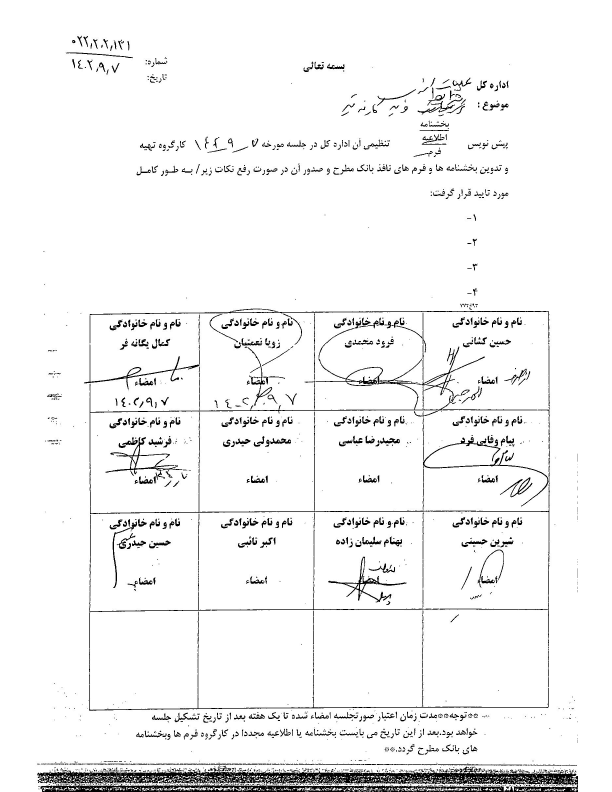 ۰۲۲,۲۰۲,۱۳۱
شماره:
بسمه تعالی
۱۴۰۲,۹,۷
تاریخ:
اداره کل
موضوع: کارنه تیر
بخشنامه
پیش نویس اطلاعیه تنظیمی آن اداره کل در جلسه مورخه ۱۴۰۲/۹/۷ کارگروه تهیه
فرم
و تدوین بخشنامه ها و فرم های نافذ بانک مطرح و صدور آن در صورت رفع نکات زیر/ به طور کامل
مورد تایید قرار گرفت:
۱-
۲-
۳-
۴-
نام و نام خانوادگی نام و نام خانوادگی نام و نام خانوادگی نام و نام خانوادگی
حسین کشانی فرود محمدی زویا نعمتیان کمال یگانه فر
امضاء امضاء امضاء امضاء
۱۴۰۲,۹,۷ ۱۴۰۲,۹,۷
نام و نام خانوادگی نام و نام خانوادگی نام و نام خانوادگی نام و نام خانوادگی
پیام وفایی فرد مجیدرضا عباسی محمدولی حیدری فرشید کاظمی
امضاء امضاء امضاء امضاء
نام و نام خانوادگی نام و نام خانوادگی نام و نام خانوادگی نام و نام خانوادگی
شیرین حسینی بهنام سلیمان زاده اکبر تائبی حسین حیدری
امضاء امضاء امضاء امضاء
**توجه**مدت زمان اعتبار صورتجلسه امضاء شده تا یک هفته بعد از تاریخ تشکیل جلسه
خواهد بود.بعد از این تاریخ می بایست بخشنامه یا اطلاعیه مجددا در کارگروه فرم ها وبخشنامه
های بانک مطرح گردد.**